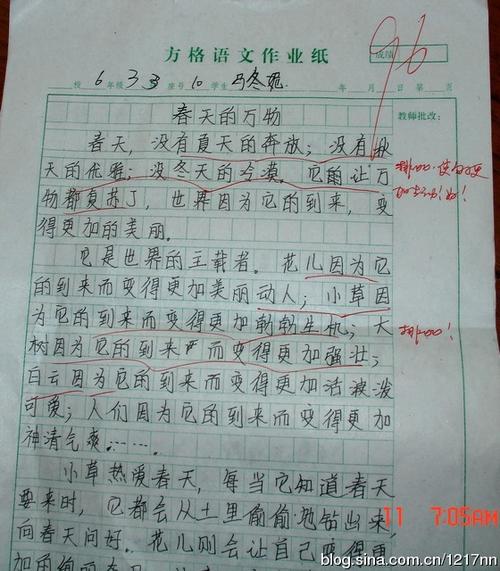 方格语文作业纸
成绩
96
校 6 年级 3 座号 10 学生 冬
年 月 日 第 页
教师批改:
春天的万物
春天,没有夏天的奔放;没有秋
天的优雅;没冬天的冷漠。它的让万
物都复苏了,世界因为它的到来,变
得更加的美丽。
排比 使句更
加生动!
它是世界的主载者。花儿因为它
的到来而变得更加美丽动人;小草因
为它的到来而变得更加勃勃生机;大
树因为它的到来而变得更加强壮;
排比!
白云因为它的到来而变得更加活波泼
可爱;人们因为它的到来而变得更加
神清气爽……
小草热爱春天,每当它知道春天
要来时,它都会从土里偷偷地钻出来,
向春天问好。花儿则会让自己变得更
加的
11 7:05AM
blog.sina.com.cn/1217nn